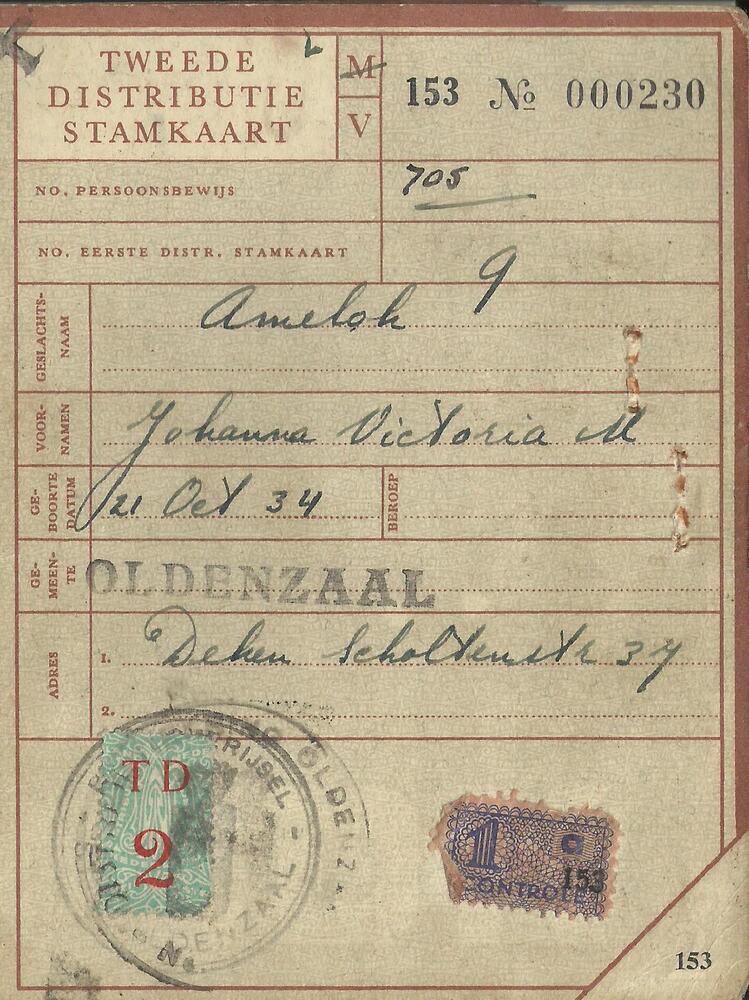 TWEEDE
DISTRIBUTIE
STAMKAART
M
V
153 No 000230
NO. PERSOONSBEWIJS
705
NO. EERSTE DISTR. STAMKAART
9
GESLACHTS-
NAAM
Amelok
VOOR-
NAMEN
Johanna Victoria M
GE-
BOORTE
DATUM
21 Oct 34
BEROEP
GE-
MEEN-
TE
OLDENZAAL
ADRES
1. Deken Scholtenstr 37
2.
TD
2
OLDENZAAL
1
CONTROLE
153
153